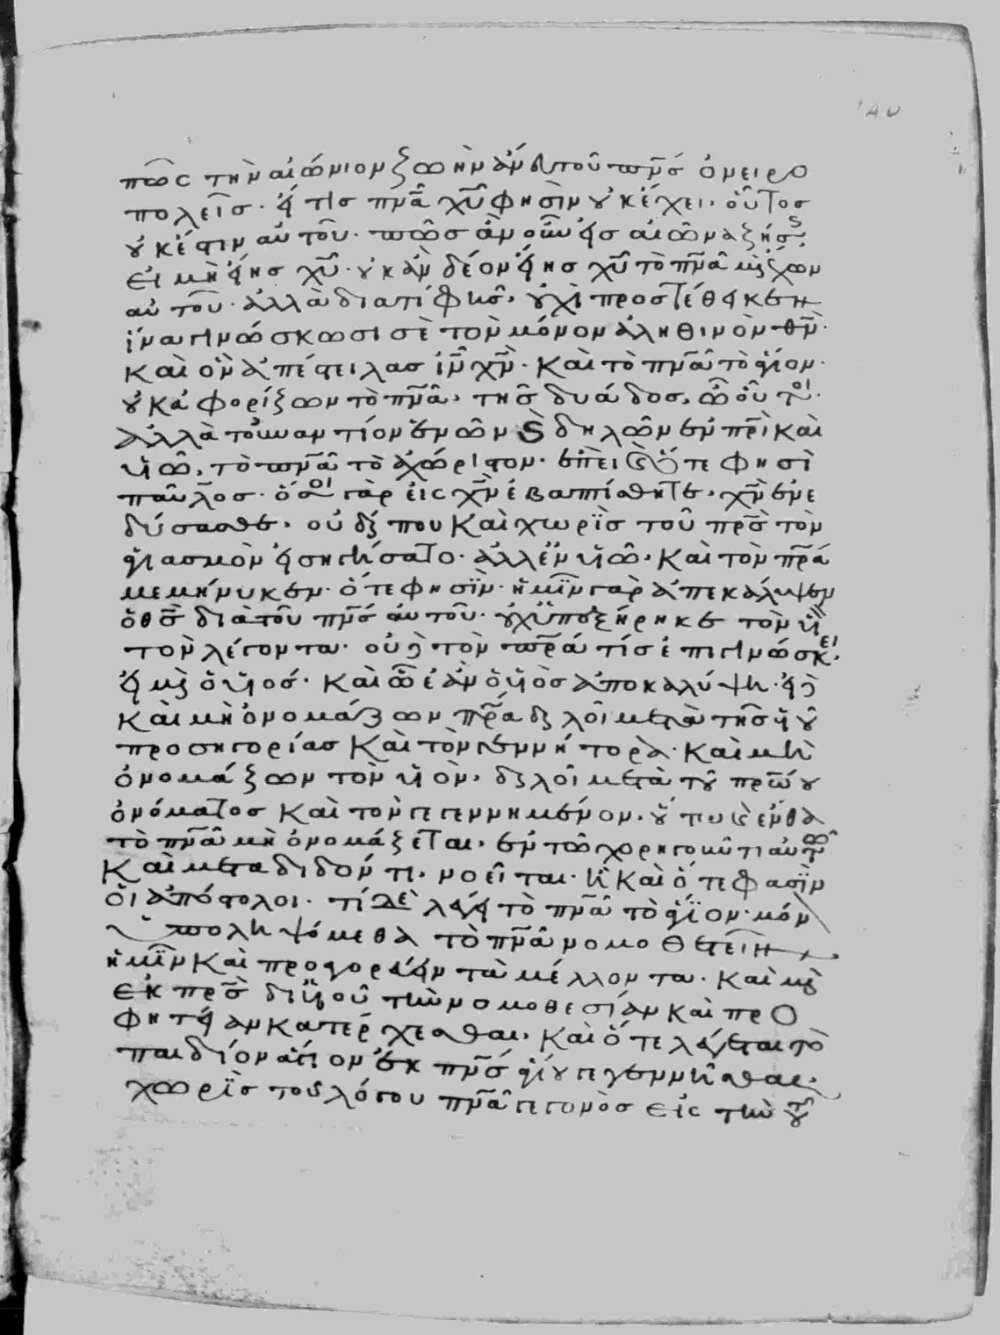 πῶς τὴν αἰώνιον ζωὴν ἄνευ τοῦ πν̅ς ὀνειρο
πολεῖς· εἴ τις πν̅α χυ̅ φησὶν οὐκ ἔχει· οὗτος
οὐκ ἔστιν αὐτοῦ· πῶς ἂν οὖν εἰς αἰῶνα ζήσῃς
εἰ μὴ εἴης χυ̅· οὐκ ἂν δέον εἴης χυ̅ τὸ πν̅α μὴ ἔχων
αὐτοῦ· ἀλλὰ διατί φησ, οὐχὶ προστέθεικεν
ἵνα γινώσκωσί σὲ τὸν μόνον ἀληθινὸν θν̅·
καὶ ὃν ἀπέστειλας ιν̅ χν̅· καὶ τὸ πν̅α τὸ ἅγιον·
οὐκ ἀφορίζων τὸ πν̅α, τῆς δυάδος, ὦ οὗτοι·
ἀλλὰ τοὐναντίον ἐνὸν δηλῶν ἐν πρ̅ι καὶ
υἱῶ, τὸ πν̅α τὸ ἀχώριστον· ἐπεὶ ὅτε φησὶ
παῦλος· ὅσοι γὰρ εἰς χν̅ ἐβαπτίσθητε, χν̅ ἐνε
δύσασθε, οὐ δήπου καὶ χωρὶς τοῦ πρ̅ς τὸν
ἁγιασμὸν εἰσηγήσατο· ἀλλ' ἐν υἱῶ, καὶ τὸν πρ̅α
μεμήνυκεν· ὅτε φησὶν· ἡμῖν γὰρ ἀπεκάλυψεν
ὁ θς̅ διὰ τοῦ πν̅ς αὐτοῦ· οὐχ ὑπεξήρηκε τὸν υἱὸν
τὸν λέγοντα· οὐδὲ τὸν πρ̅α τίς ἐπιγινώσκει,
εἰ μὴ ὁ υἱός· καὶ ᾧ ἐὰν ὁ υἱὸς ἀποκαλύψη·
καὶ μὴ ὀνομάζων πρ̅α δηλοῖ μετὰ τῆς υἱοῦ
προσηγορίας καὶ τὸν γεννήτορα· καὶ μὴ
ὀνομάζων τὸν υἱὸν, δηλοῖ μετὰ τοῦ πρώου
ὀνόματος καὶ τὸν γεγεννημένον, οὕτως ἔνθα
τὸ πν̅α μὴ ὀνομάζεται, ἐν τῶ χορηγοῦντι αὐτῶ
καὶ μεταδιδόντι, νοεῖται· ἢ καὶ ὅτε φασὶν
οἱ ἀπόστολοι· τί δὲ λαλεῖ τὸ πν̅α τὸ ἅγιον· μόν
ὑποληψόμεθα τὸ πν̅α νομοθετεῖν
ἡμῖν καὶ προαγορεύειν τὰ μέλλοντα· καὶ μὴ
ἐκ πρ̅ς δι' υἱοῦ τὴν νομοθεσίαν καὶ προ
φητείαν κατέρχεσθαι, καὶ ὅτε λέγεται τὸ
παιδίον ἅγιον ἐκ πν̅ς ἁγίου γεγεννῆσθαι,
χωρὶς τοῦ λόγου πν̅α γεγονὸς εἰς τὴν τοῦ